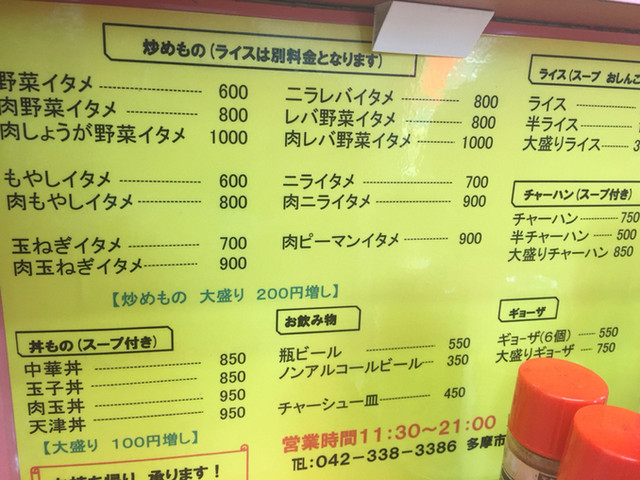 炒めもの(ライスは別料金となります)
野菜イタメ 600
肉野菜イタメ 800
肉しょうが野菜イタメ 1000
もやしイタメ 600
肉もやしイタメ 800
玉ねぎイタメ 700
肉玉ねぎイタメ 900
ニラレバイタメ 800
レバ野菜イタメ 800
肉レバ野菜イタメ 1000
ニライタメ 700
肉ニライタメ 900
肉ピーマンイタメ 900
【炒めもの 大盛り 200円増し】
丼もの(スープ付き)
中華丼 850
玉子丼 850
肉玉丼 950
天津丼 950
【大盛り 100円増し】
お飲み物
瓶ビール 550
ノンアルコールビール 350
チャーシュー皿 450
ライス(スープ おしんこ
ライス
半ライス
大盛りライス
チャーハン(スープ付き)
チャーハン 750
半チャーハン 500
大盛りチャーハン 850
ギョーザ
ギョーザ(6個) 550
大盛りギョーザ 750
営業時間11:30～21:00
TEL:042-338-3386 多摩市
お持ち帰り 承ります!